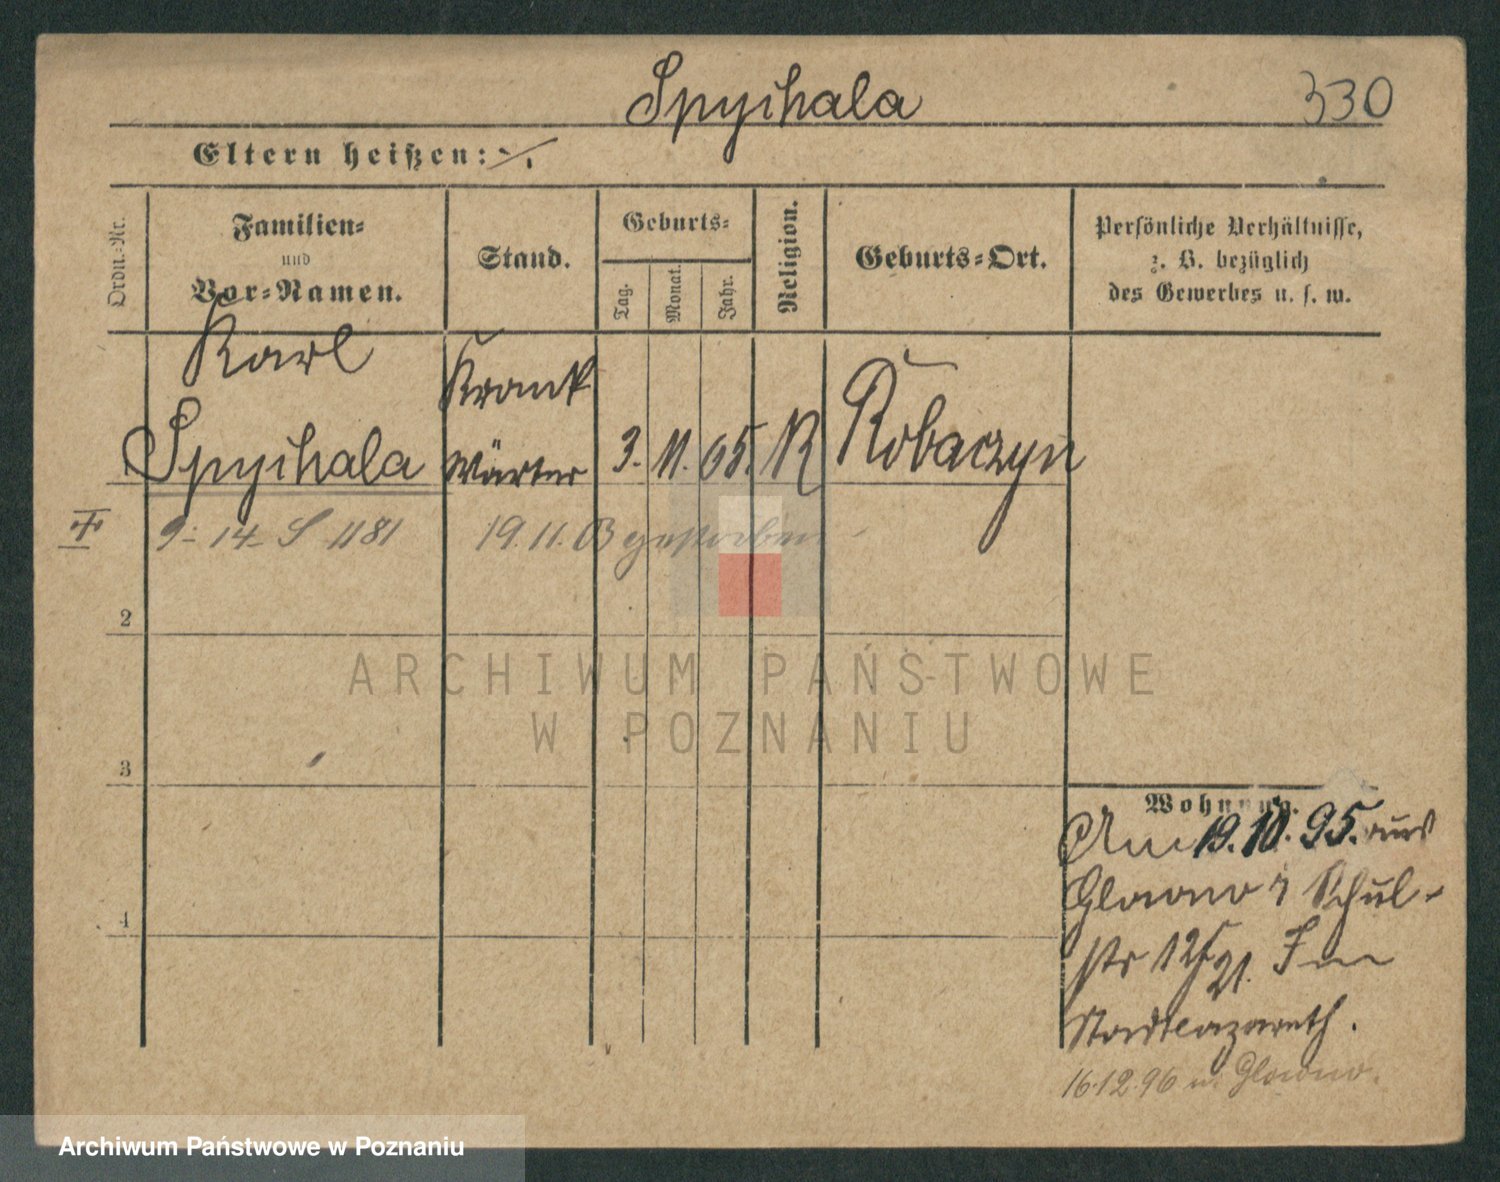 Spyihala
330
Eltern heißen: ./.
Ordn.-Nr.
Familien-
und
Vor-Namen.
Stand.
Geburts-
Tag.
Monat.
Jahr.
Religion.
Geburts-Ort.
Persönliche Verhältnisse,
z. B. bezüglich
des Gewerbes u. s. w.
Karl
Spyihala
Krank
Wärter
3. 11. 65. R
Robaczyn
9. 14. S 1181 19.11. 03 gestorben
2
3
4
ARCHIWUM PAŃSTWOWE
W POZNANIU
Wohnung.
Am 19.10.95. aus
Glowno n Schul-
str 12/21. Im
Stadtlazareth.
16.12.96 n. Glowno.
Archiwum Państwowe w Poznaniu